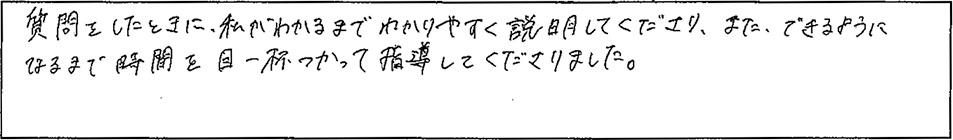 質問をしたときに、私がわかるまでわかりやすく説明してくださり、また、できるように
なるまで時間を目一杯つかって指導してくださりました。